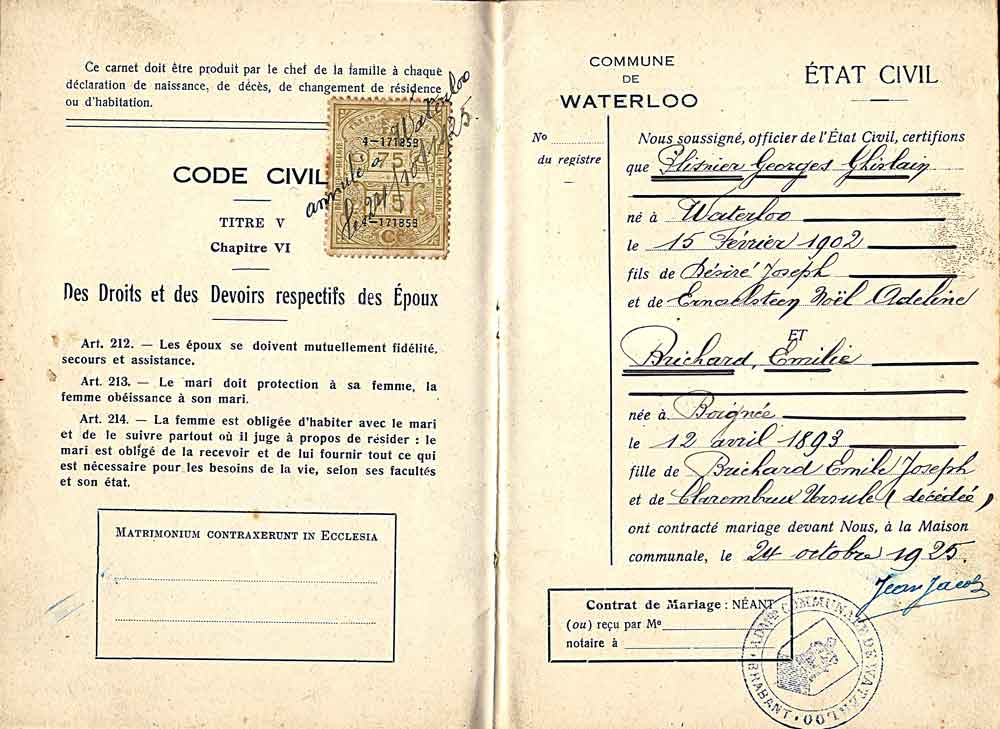 Ce carnet doit être produit par le chef de la famille à chaque
déclaration de naissance, de décès, de changement de résidence
ou d'habitation.
CODE CIVIL
TITRE V
Chapitre VI
Des Droits et des Devoirs respectifs des Époux
Art. 212. — Les époux se doivent mutuellement fidélité,
secours et assistance.
Art. 213. — Le mari doit protection à sa femme, la
femme obéissance à son mari.
Art. 214. — La femme est obligée d'habiter avec le mari
et de le suivre partout où il juge à propos de résider : le
mari est obligé de la recevoir et de lui fournir tout ce qui
est nécessaire pour les besoins de la vie, selon ses facultés
et son état.
MATRIMONIUM CONTRAXERUNT IN ECCLESIA
4-171859
75
4-171859
annulé à Waterloo
le 24/10/1925.
COMMUNE
DE
WATERLOO
No
du registre
ÉTAT CIVIL
Nous soussigné, officier de l'État Civil, certifions
que Plisnier Georges Ghislain
né à Waterloo
le 15 Février 1902
fils de Désiré Joseph
et de Ernaelsteen Noël Adeline
ET
Brichard, Emilie
née à Boignée
le 12 avril 1893
fille de Brichard Emile Joseph
et de Clarembaux Ursule (décédée)
ont contracté mariage devant Nous, à la Maison
communale, le 24 octobre 1925.
Jean Jacobs
Contrat de Mariage : NÉANT
(ou) reçu par Me
notaire à
ADMon COMMUNALE DE WATERLOO
BRABANT